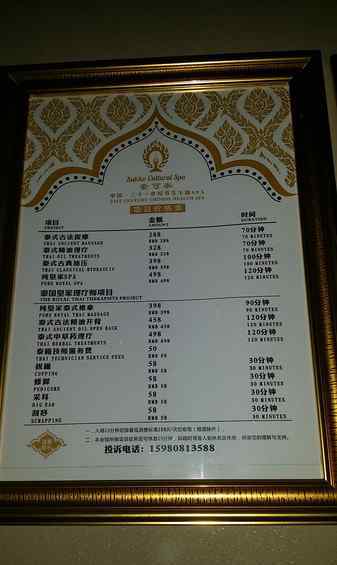 Sukho Cultural Spa
21ST CENTURY CHINESE HEALTH SPA
项目价格表
项目 金额 时间
PROJECT AMOUNT DURATION
泰式古法按摩 288 70分钟
THAI ANCIENT MASSAGE RMB 288 70 MINUTES
泰式精油理疗 328 70分钟
THAI OIL TREATMENTS RMB 328 70 MINUTES
398 100分钟
THAI CLASSICAL HYDRAULIC RMB 398 100 MINUTES
纯皇家SPA 498 120分钟
PURE ROYAL SPA RMB 498 120 MINUTES
泰国皇家理疗师项目
THE ROYAL THAI THERAPISTS PROJECT
纯皇家泰式推拿 398 90分钟
PURE ROYAL THAI MASSAGE RMB 398 90 MINUTES
泰式古法精油开背 458 120分钟
THAI ANCIENT OIL OPEN BACK RMB 458 120 MINUTES
泰式中草药理疗 498 120分钟
THAI HERBAL TREATMENTS RMB 498 120 MINUTES
泰籍技师服务费 50
THAI TECHNICIAN SERVICE FEES RMB 50
拔罐 58 30分钟
CUPPING RMB 58 30 MINUTES
修脚 58 30分钟
PEDICURE RMB 58 30 MINUTES
采耳 58 30分钟
DIG EAR RMB 58 30 MINUTES
刮痧 58 30分钟
SCRAPPING RMB 58 30 MINUTES
投诉电话：15980813588